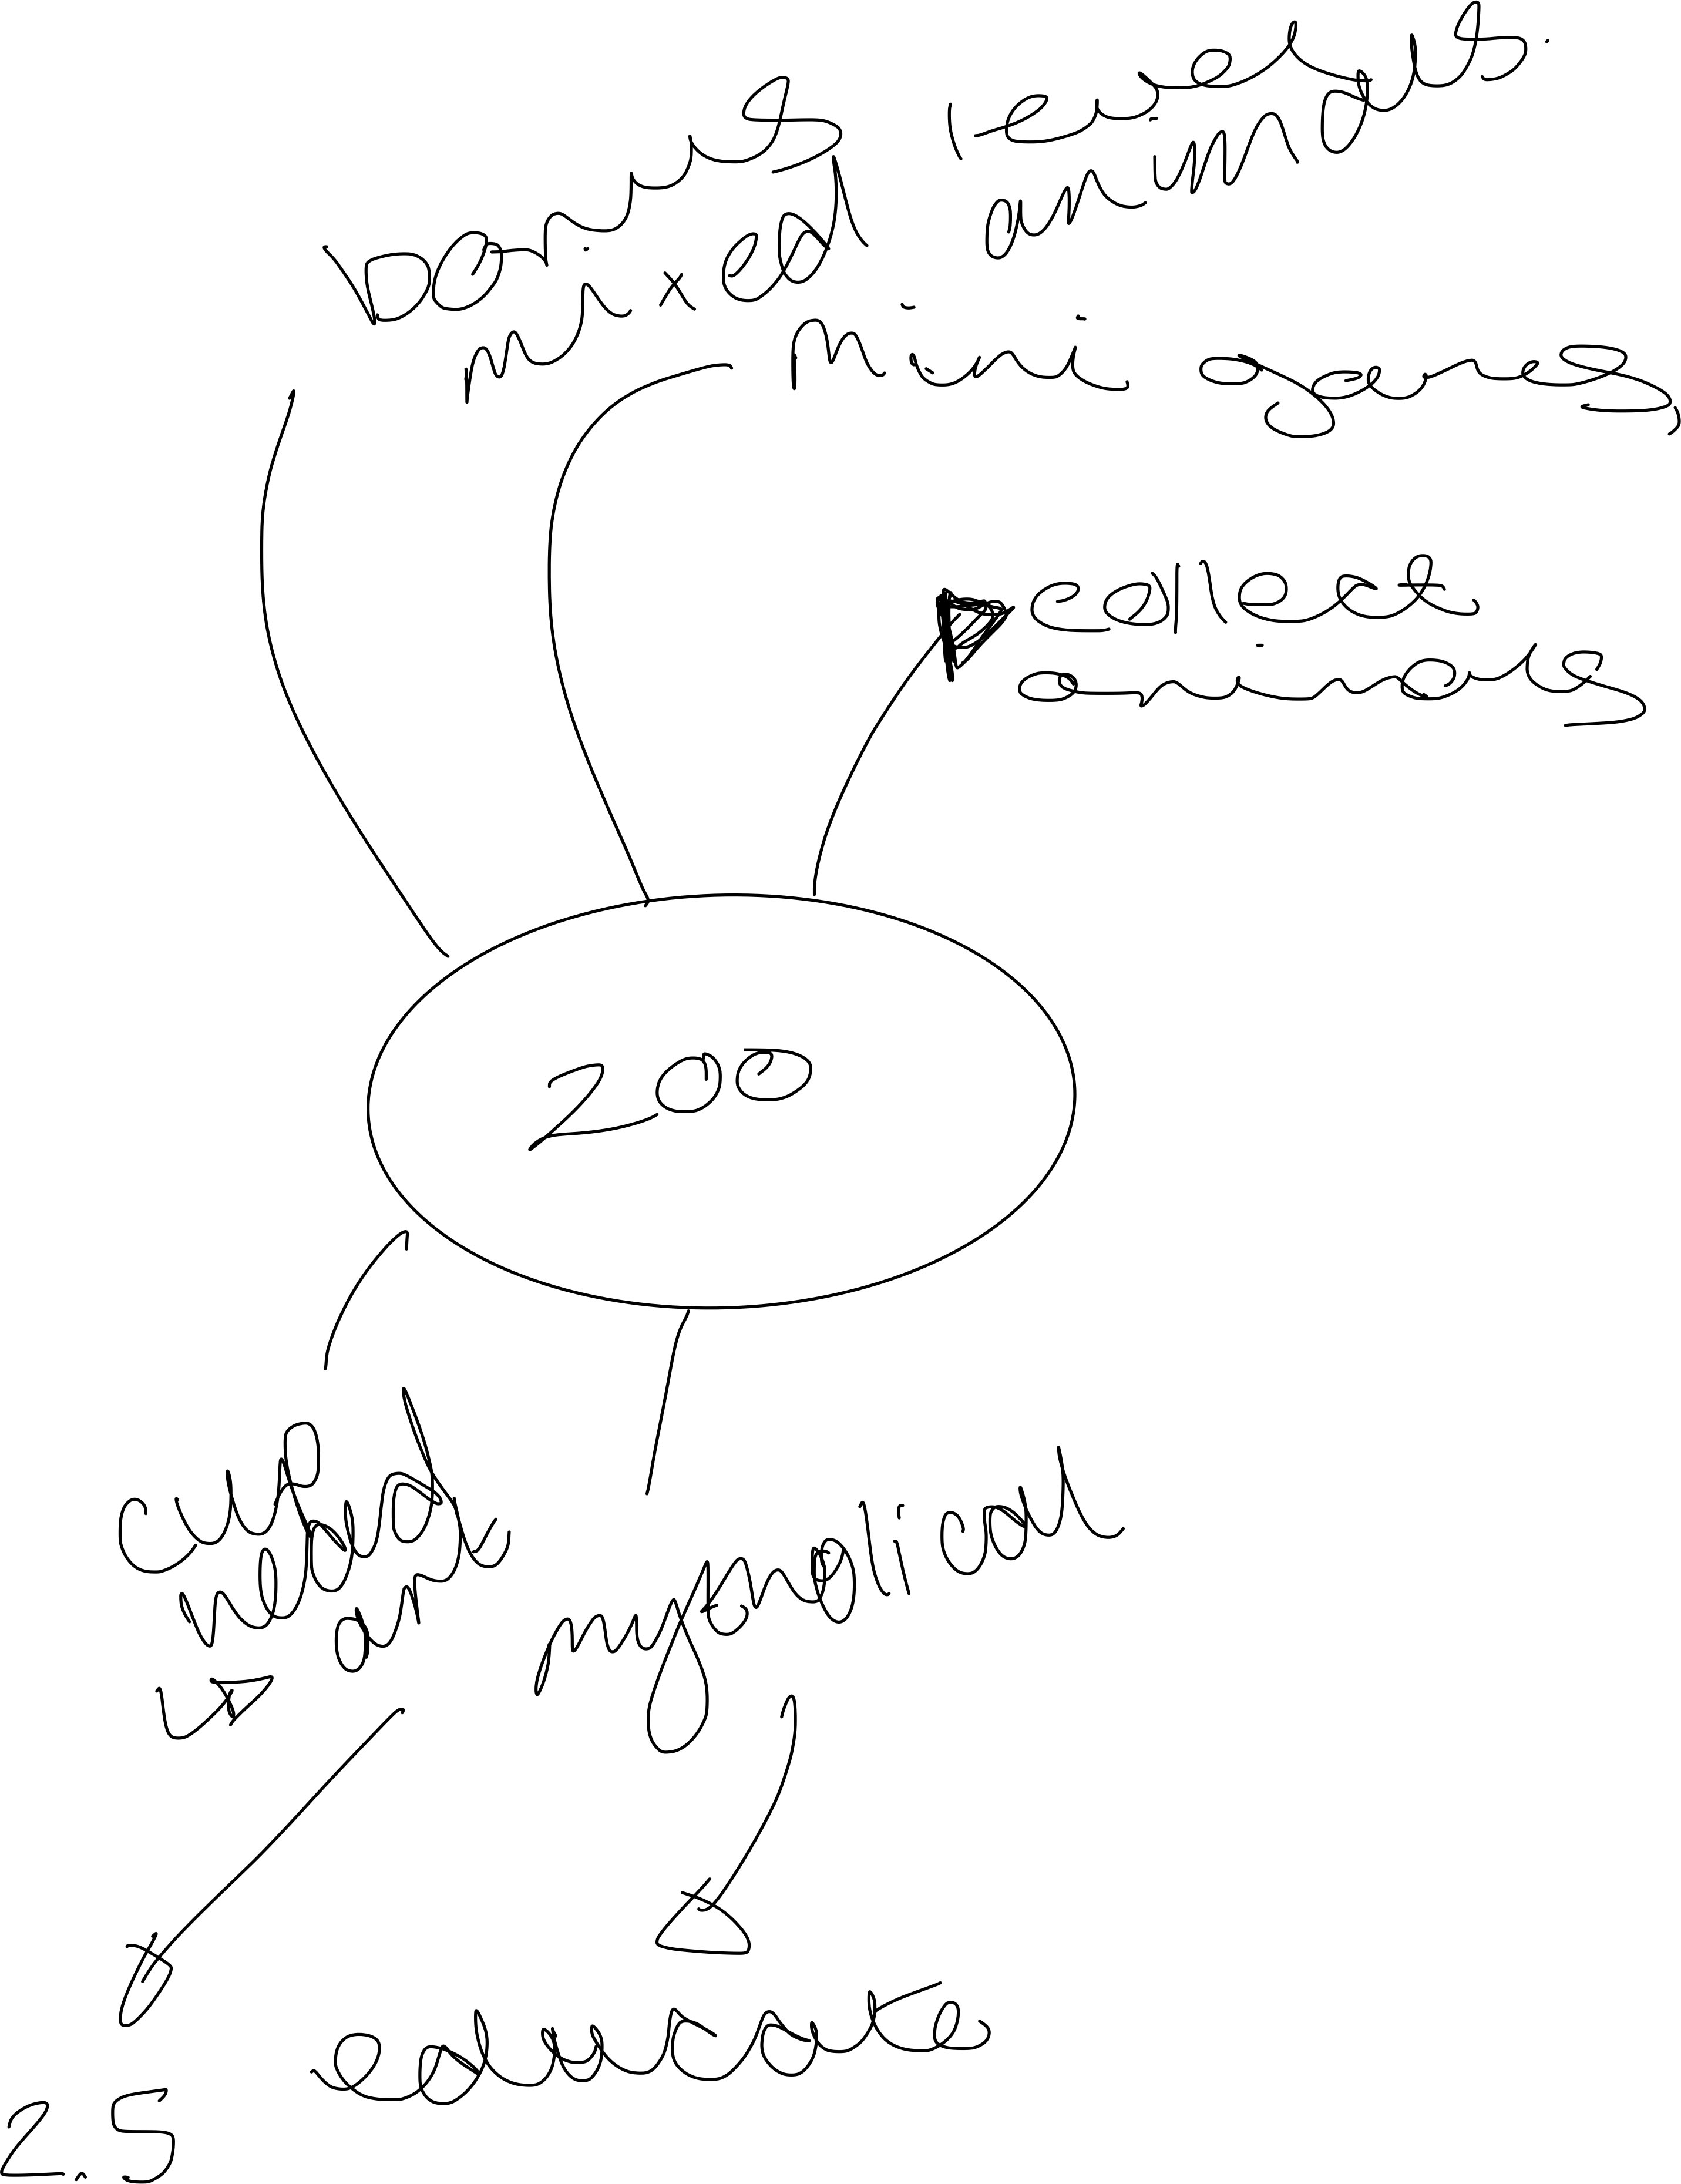 Bonus level
mixed animals.
Mini
collect
animals
ZOO
cup
head
art
mythical
educate
2.5